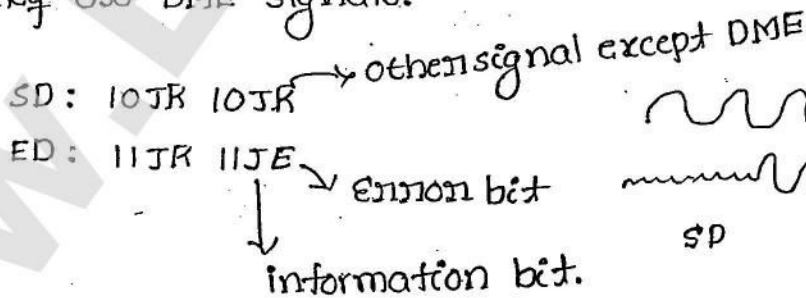 DME signals.
SD: 10JK 10JK → other signal except DME
ED: 11JK 11JE → Error bit
information bit.
SD